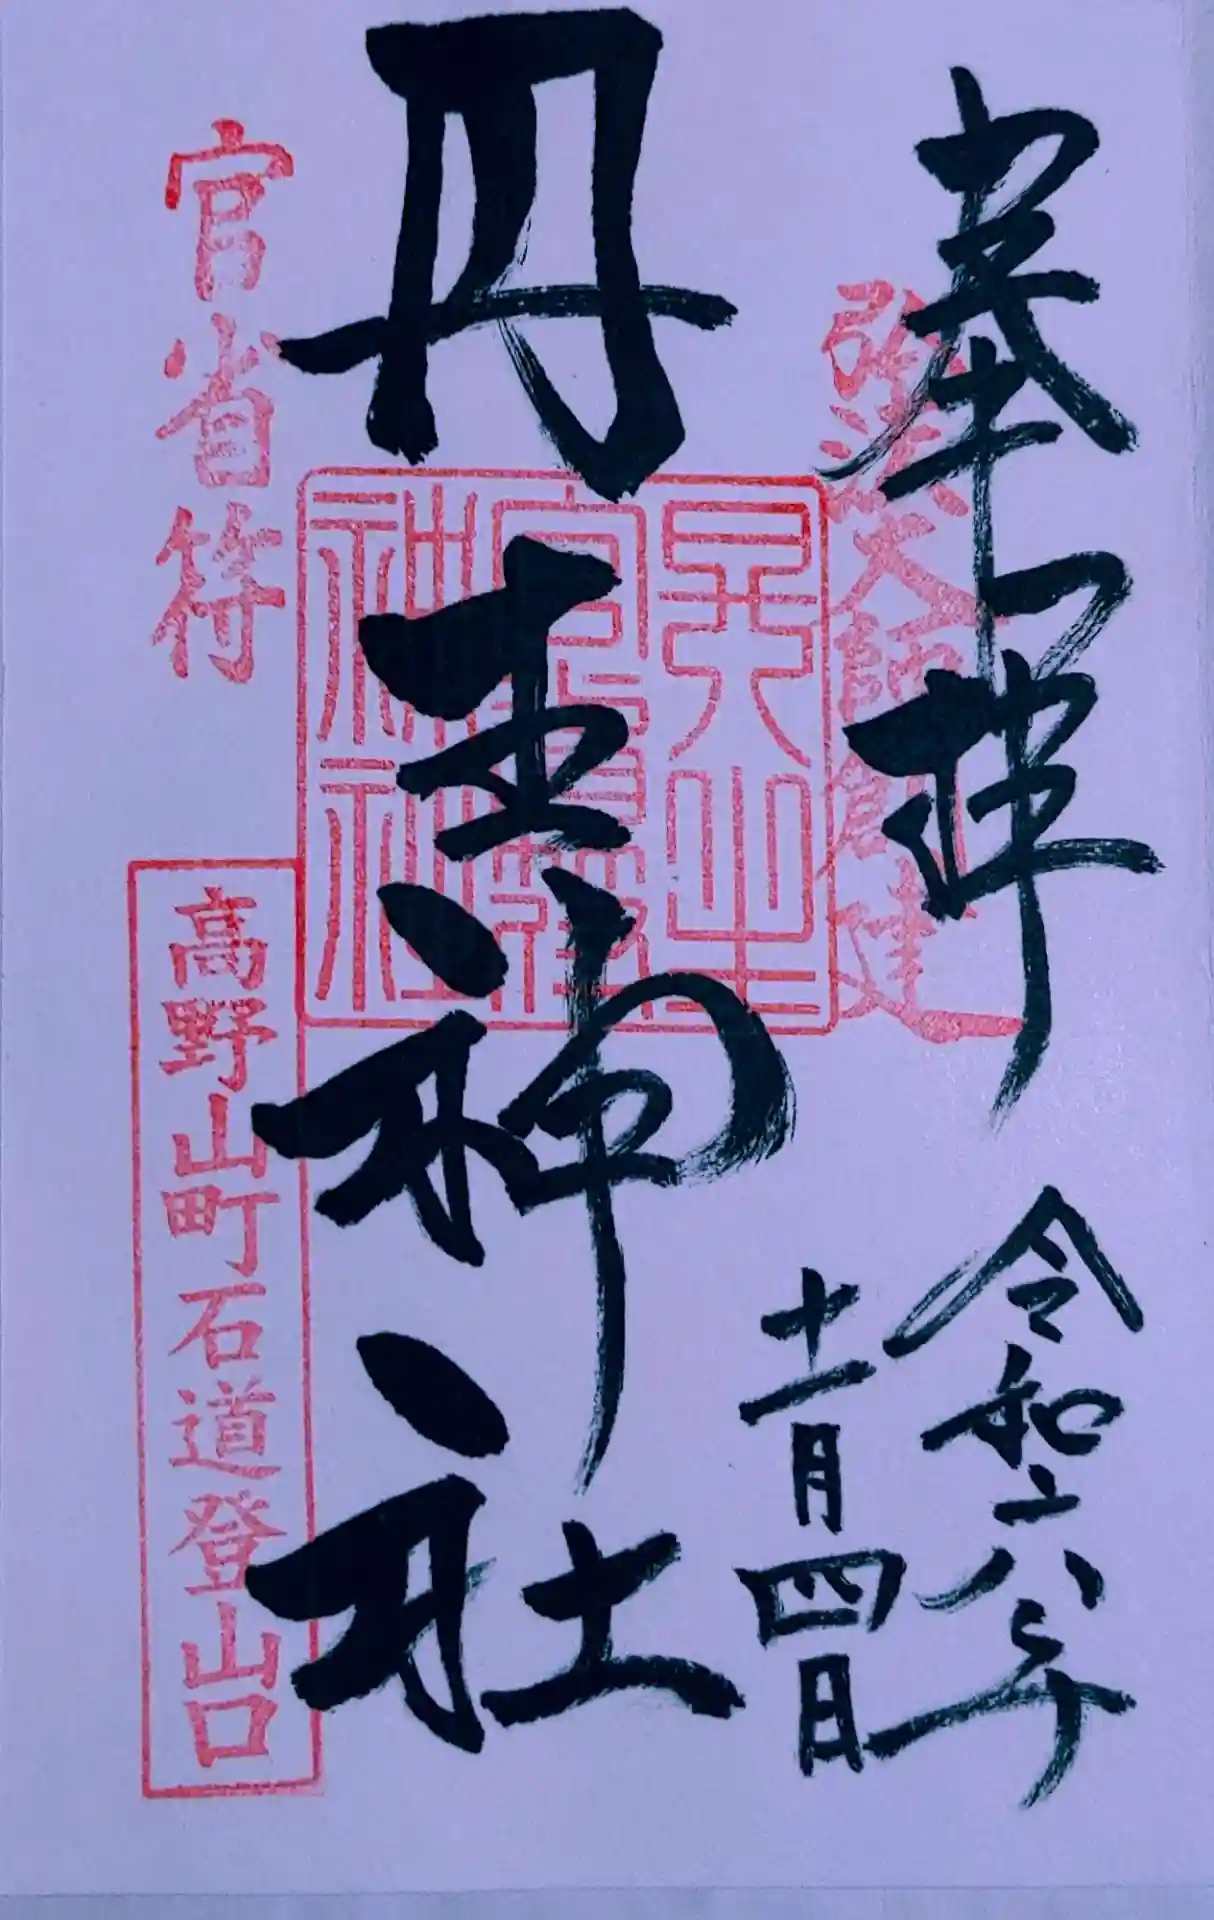 奉拝
弘法大師創建
令和六年
十一月四日
丹生神社
官省符
神社
官省符
高野山町石道登山口